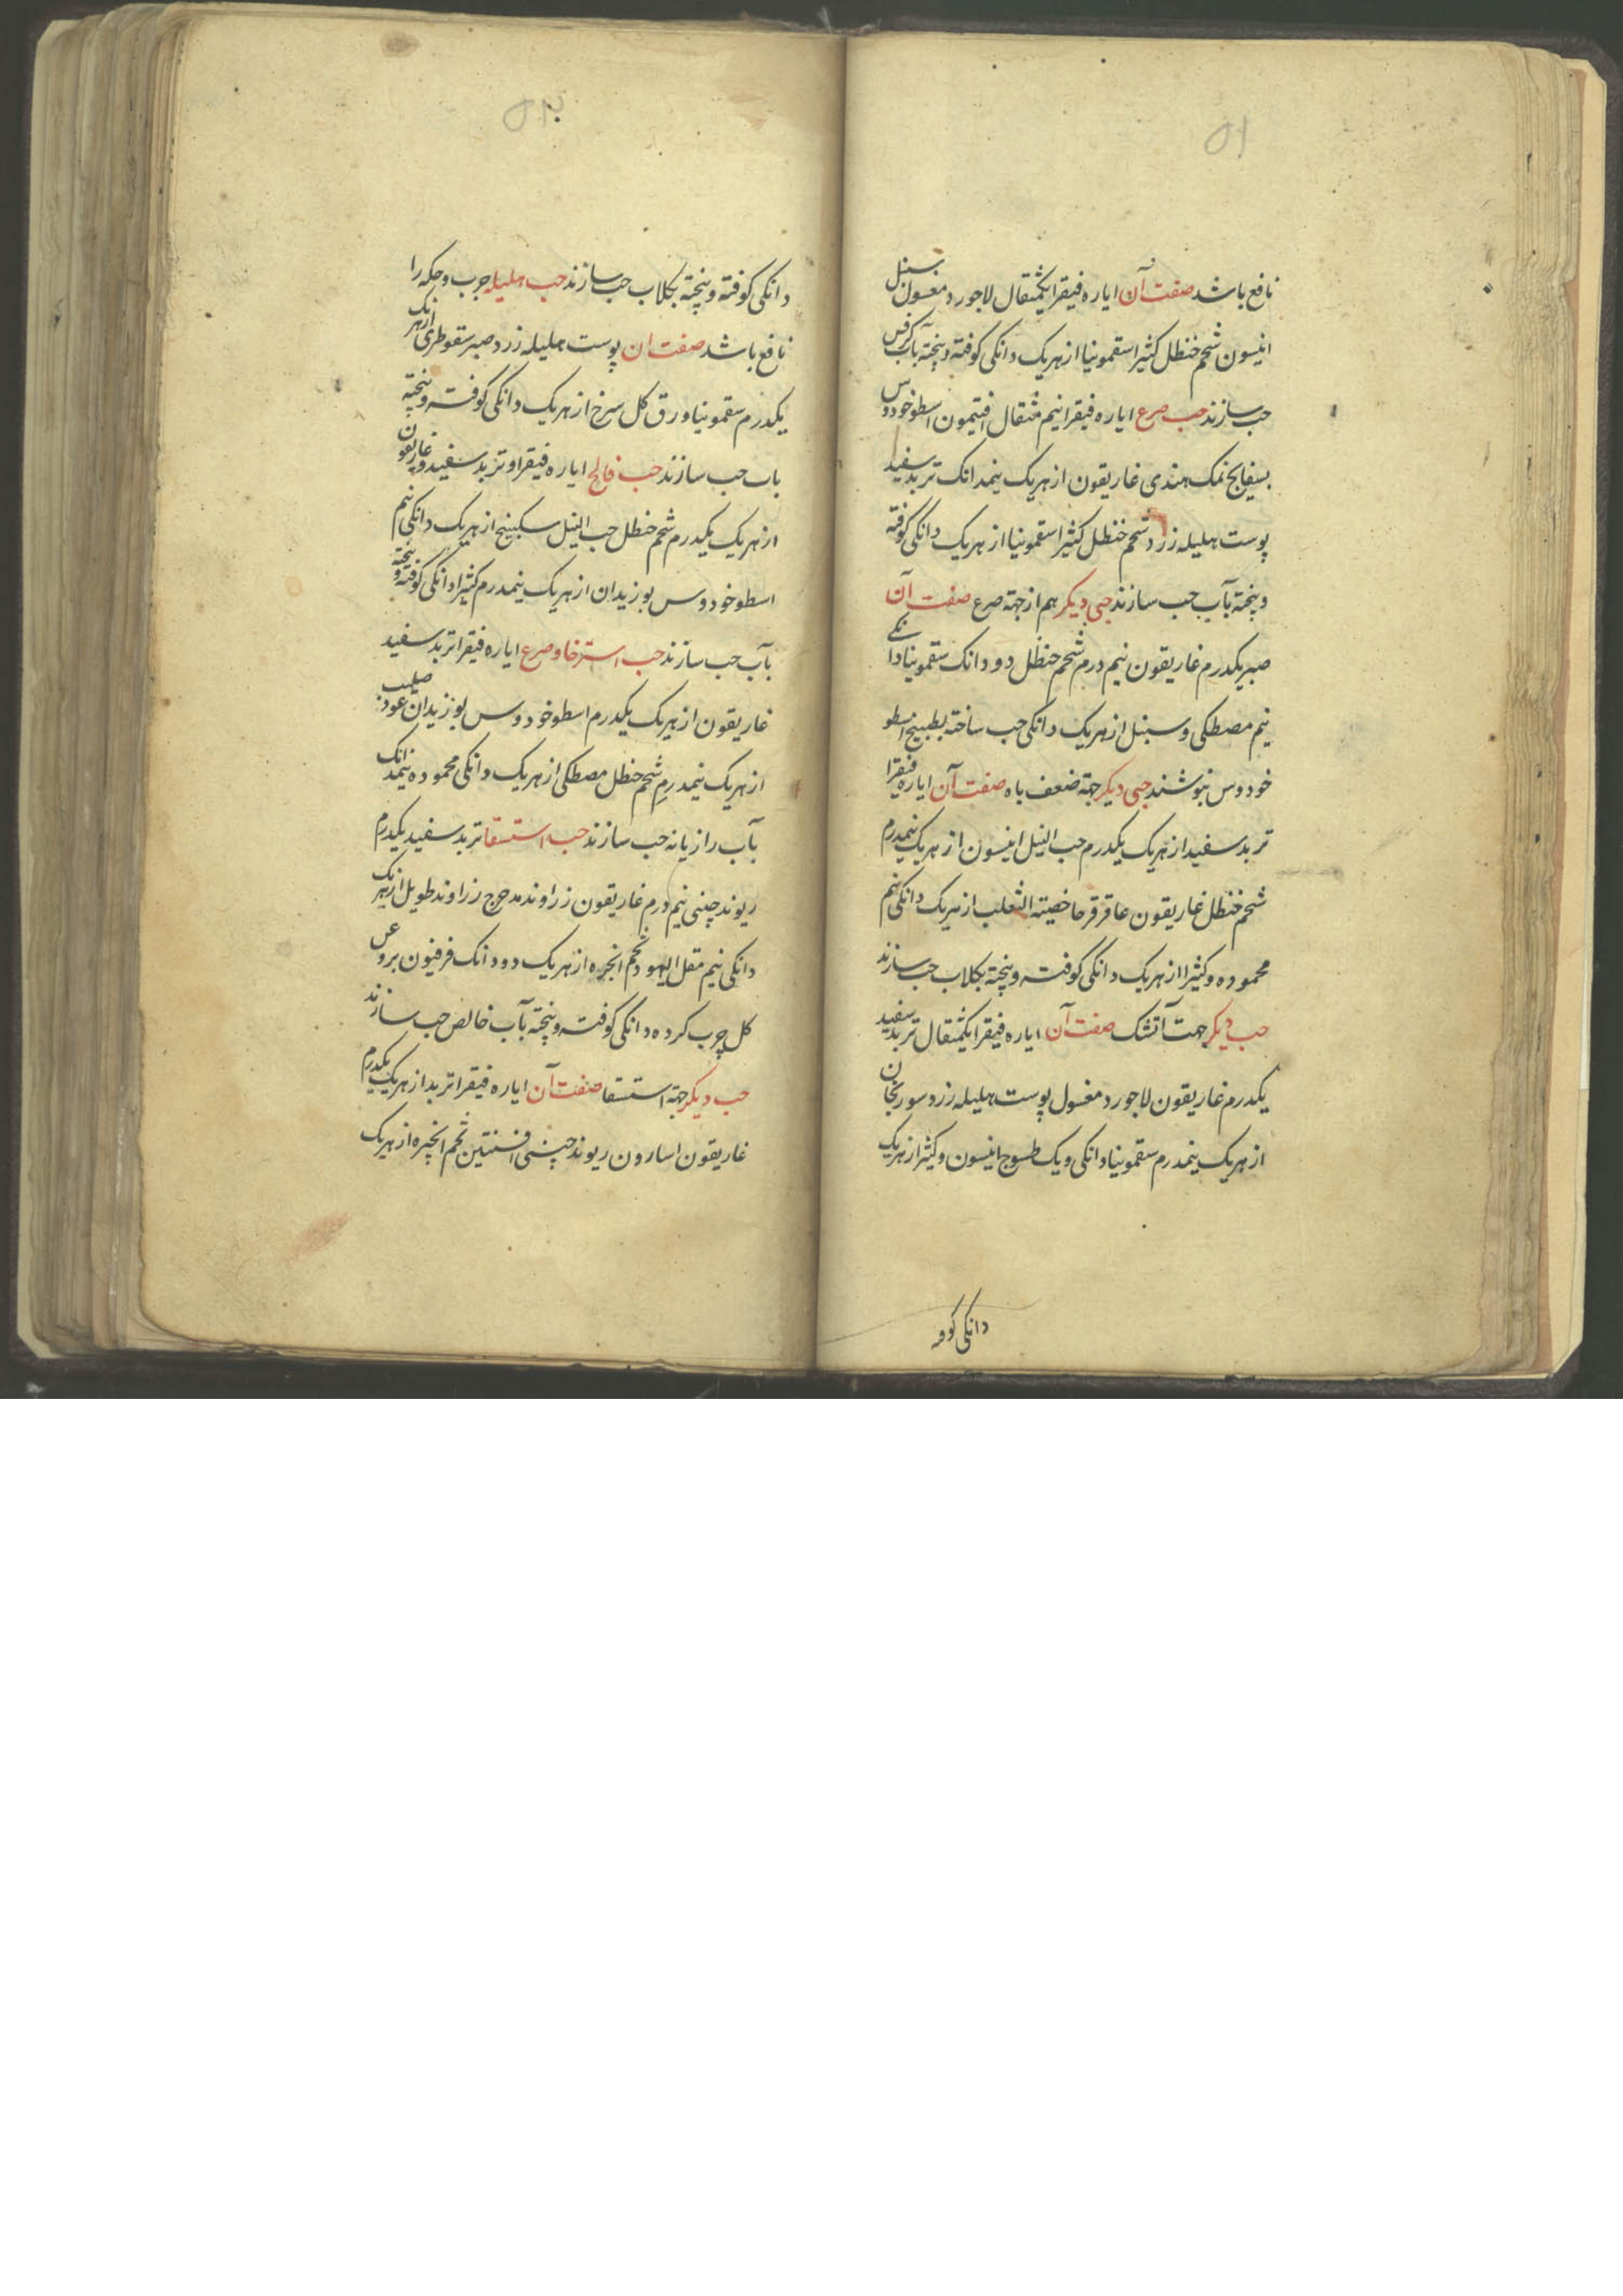 ۵۱
نافع باشد صفت آن ایاره فیقرا یکمثقال لاجورد مغسول سنبل
انیسون شحم حنظل کثیرا سقمونیا از هریک دانکی کوفته و پخته بآب کرفس
حب سازند حب صرع ایاره فیقرا نیم مثقال افتیمون اسطوخودوس
بسفایج نمک هندی غاریقون از هریک نیمدانک تربد سفید
پوست هلیله زرد شحم حنظل کثیرا سقمونیا از هریک دانکی کوفته
و پخته بآب حب سازند حبی دیکر هم از جهة صرع صفت آن
صبر یکدرم غاریقون نیم درم شحم حنظل دو دانک سقمونیا دانکے
نیم مصطکی و سنبل از هریک دانکی حب ساخته بطبیخ اسطو
خودوس بنوشند حبی دیکر جهة ضعف باه صفت آن ایاره فیقرا
تربد سفید از هریک یکدرم حب النیل انیسون از هریک نیمدرم
شحم حنظل غاریقون عاقرقرحا خصیته الثعلب از هریک دانکی نیم
محموده و کثیرا از هریک دانکی کوفته و پخته بکلاب حب سازند
حب دیکر جهت آتشک صفت آن ایاره فیقرا یکمثقال تربد سفید
یکدرم غاریقون لاجورد مغسول پوست هلیله زرد سورنجان
از هریک نیمدرم سقمونیا دانکی و یک طسوج انیسون و کثیرا از هریک
دانکی کوفته
۵۲
دانکی کوفته و پخته بکلاب حب سازند حب هلیله جرب و حکه را
نافع باشد صفت ان پوست هلیله زرد صبر سقوطری از هریک
یکدرم سقمونیا ورق کل سرخ از هریک دانکی کوفته و پخته
باب حب سازند حب فالج ایاره فیقرا و تربد سفید و غاریقون
از هریک یکدرم شحم حنظل حب النیل سکبینج از هریک دانکی نیم
اسطوخودوس بوزیدان از هریک نیمدرم کثیرا دانکی کوفته و پخته
بآب حب سازند حب استرخا و صرع ایاره فیقرا تربد سفید
غاریقون از هریک یکدرم اسطوخودوس بوزیدان عود صلیب
از هریک نیمدرم شحم حنظل مصطکی از هریک دانکی محموده نیمدانک
بآب رازیانه حب سازند حب استسقا تربد سفید یکدرم
ریوند چینی نیم درم غاریقون زراوند مدحرج زراوند طویل از هریک
دانکی نیم مقل الیهود تخم انجره از هریک دودانک فرفیون بروغن
کل چرب کرده دانکی کوفته و پخته بآب خالص حب سازند
حب دیکر جهة استسقا صفت آن ایاره فیقرا تربد از هریک یکدرم
غاریقون اسارون ریوند چینی افسنتین تخم انجره از هریک